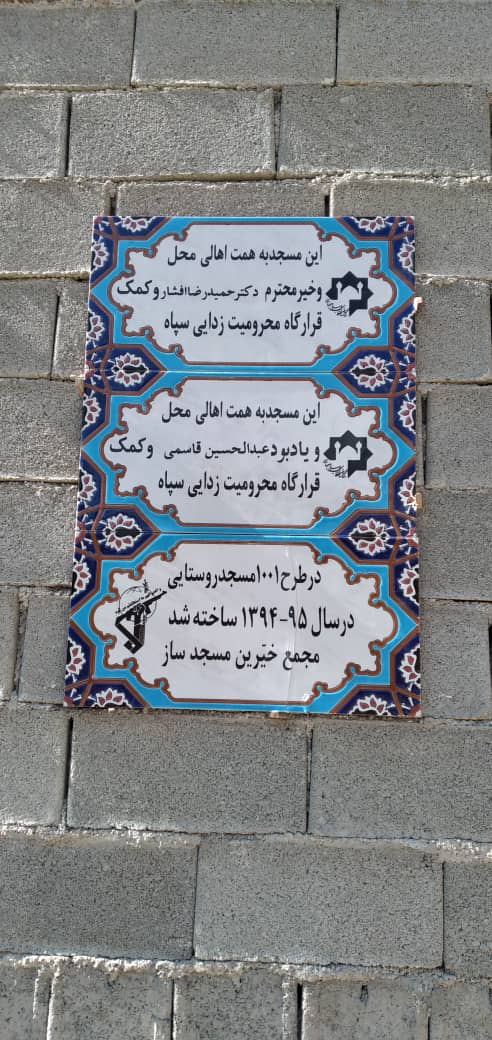 این مسجدبه همت اهالی محل
وخیرمحترم دکترحمیدرضاافشاروکمک
قرارگاه محرومیت زدایی سپاه
این مسجدبه همت اهالی محل
و یادبودعبدالحسین قاسمی وکمک
قرارگاه محرومیت زدایی سپاه
درطرح ۱۰۰۱مسجدروستایی
درسال ۹۵-۱۳۹۴ ساخته شد
مجمع خیّرین مسجد ساز